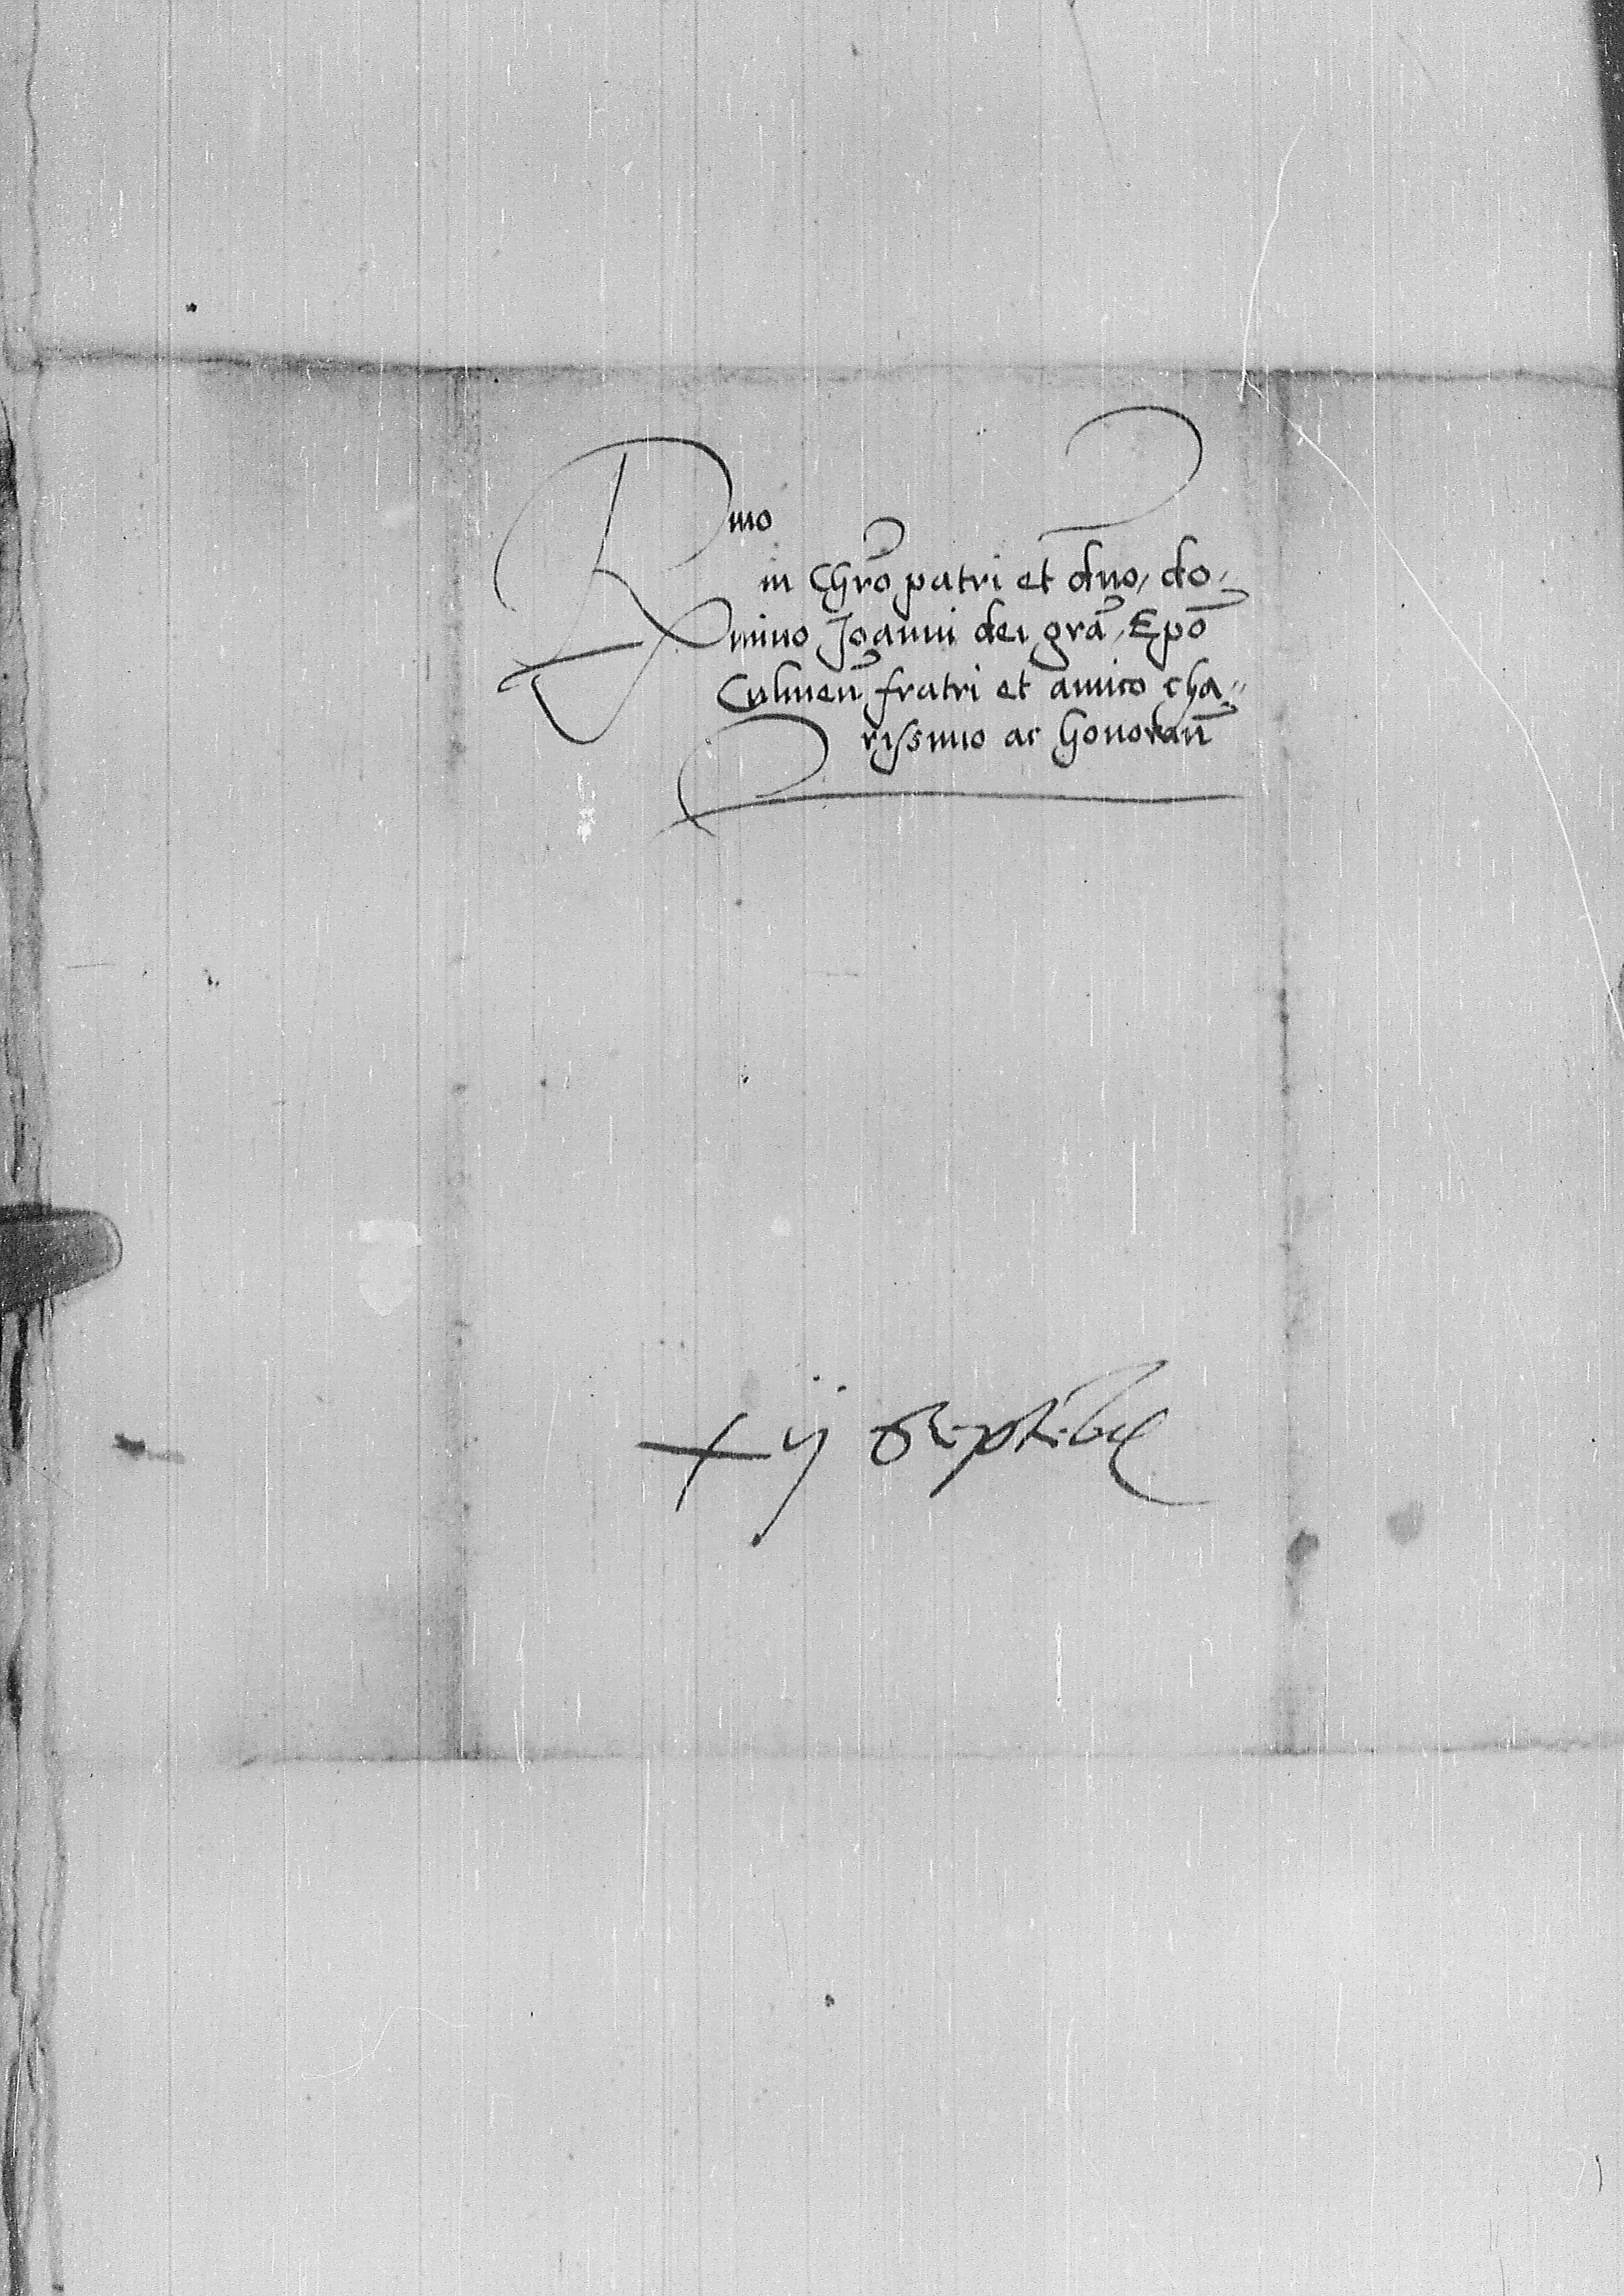 Rmo
in Chro patri et dno, do-
mino Joanni dei gra, Epo
Culmen fratri et amico cha-
rissimo ac honoran
xij Septeb